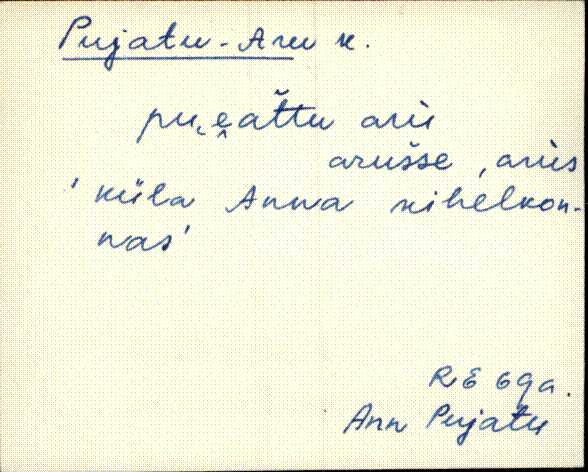 Pujatu-Aru k.
pu͔e̬aťtu aru
arušse, arus
'küla Anna kihelkon-
nas'
RE 69a.
Ann Pujatu